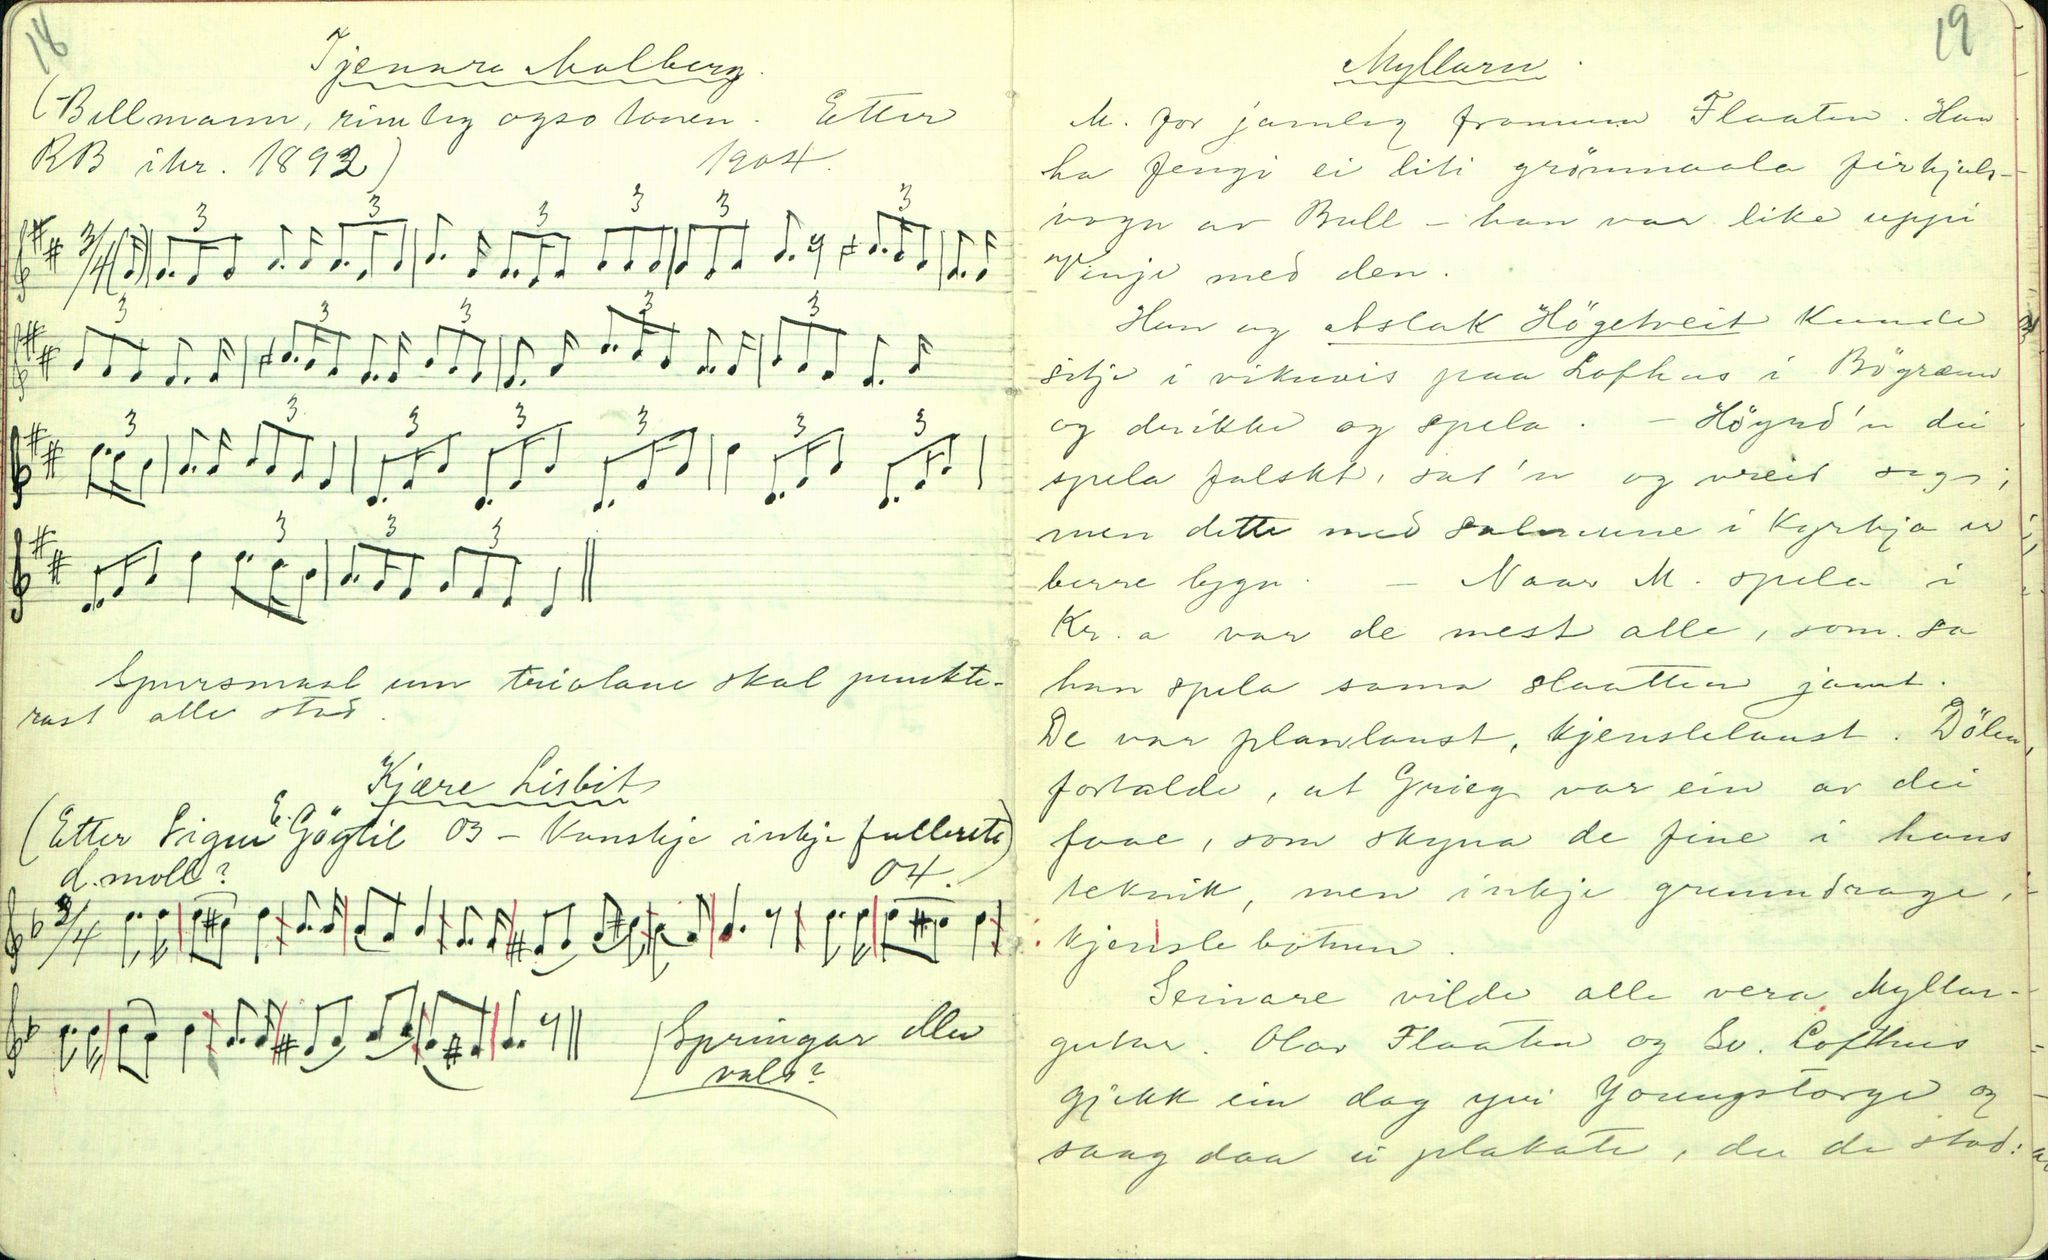 18
Tjenare Malberg.
(Bellmann, rimleg ogso tonen. Etter
RB ihr. 1892) 1904.
3/4 3 3 3 3 3 3
3 3 3 3 3
3 3 3 3 3 3 3
3 3 3
Spursmaal um triolane skal punkte-
rast alle stad.
Kjære Lisbit
(Etter Sigur E. Göytil 03 – Kanskje inkje fullrett)
d. moll? 04.
3/4
Springar eller
vals?
19
Myllarn.
M. for jamleg frammum Flaaten. Han
ha fengi ei liti grönmaala firhjuls-
vogn av Bull – han var like uppi
Vinje med den.
Han og Aslak Högetveit kunde
sitje i vikuvis paa Lofthus i
og drikke og spela. – Höyrd'n dei
spela falskt, sat'n og vreid seg;
men dette med salmunne i Kyrkja er
berre lygn. – Naar M. spela i
Kr.a var de mest alle, som sa
han spela sama slaatten jamt.
De var planlaust, kjenslelaust. Dölen
fortalde, at Grieg var ein av dei
faae, som skyna de fine i hans
teknik, men inkje grunndrage,
kjenslebotnen.
Seinare vilde alle vera Myllar-
gutar. Olav Flaaten og Sv. Lofthus
gjekk ein dag yvi Youngstorge og
saag daa ei plakate, der de stod: